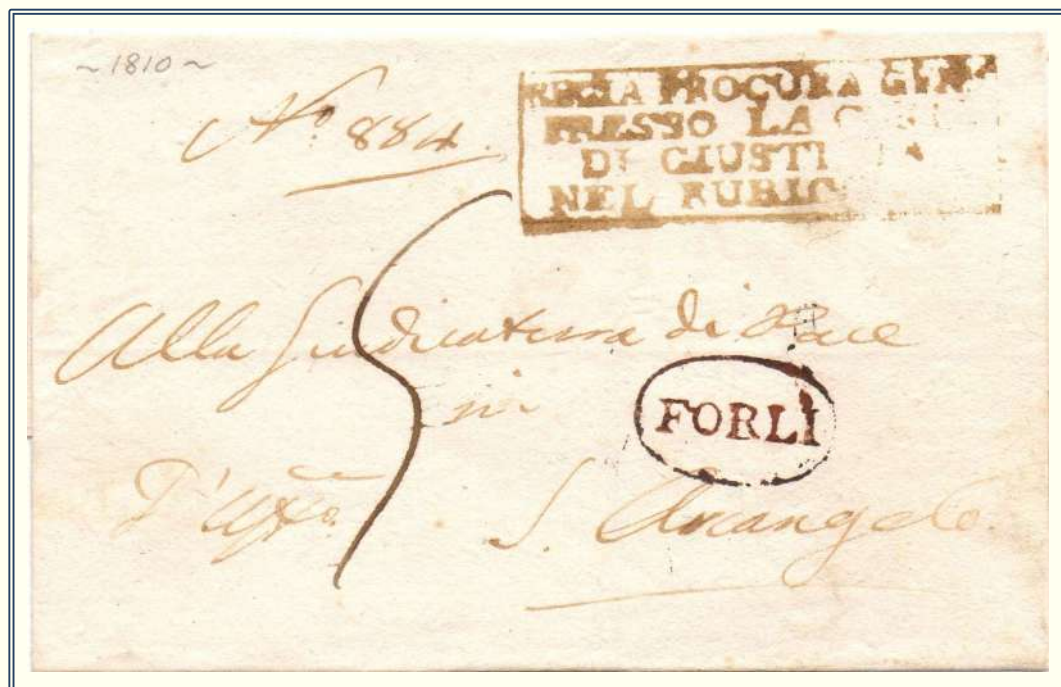 ~1810~
N.o 884.
REGIA PROCURA GEN
PRESSO LA
DI GIUSTI A
NEL RUBIC
5
Alla Giudicatura di Pace
in
FORLÌ
D'Uffo.
S. Arcangelo.